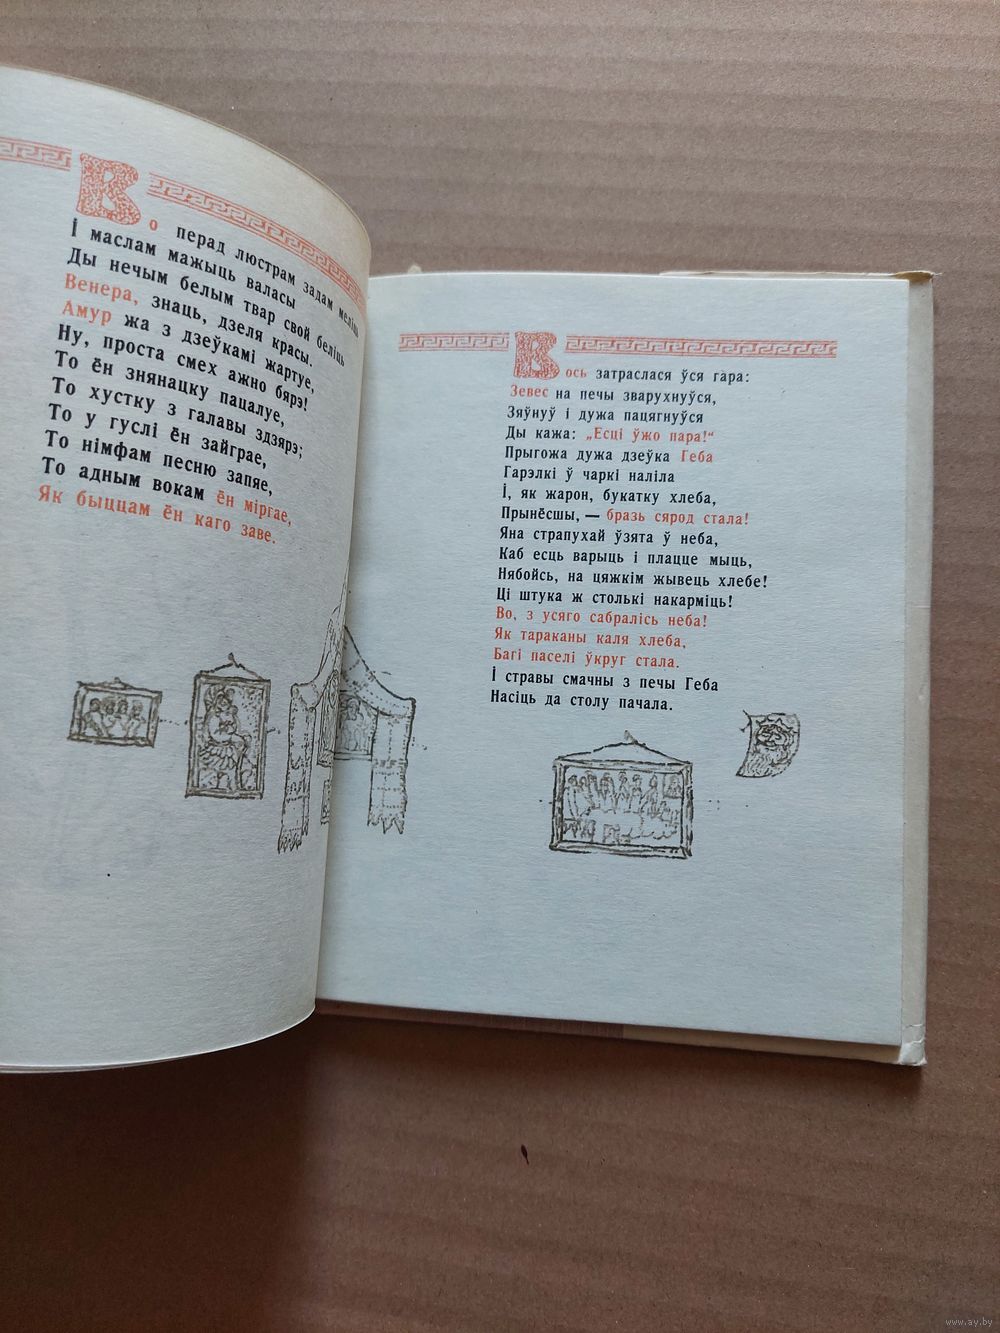 Во перад люстрам задам меліць
І маслам мажыць валасы
Ды нечым белым твар свой беліць
Венера, знаць, дзеля красы.
Амур жа з дзеўкамі жартуе,
Ну, проста смех ажно бярэ!
То ён знянацку пацалуе,
То хустку з галавы здзярэ;
То у гуслі ён зайграе,
То німфам песню запяе,
То адным вокам ён міргае,
Як быццам ён каго заве.
Вось затраслася ўся гара:
Зевес на печы зварухнуўся,
Зяўнуў і дужа пацягнуўся
Ды кажа: „Есці ўжо пара!“
Прыгожа дужа дзеўка Геба
Гарэлкі ў чаркі наліла
І, як жарон, букатку хлеба,
Прынёсшы, — бразь сярод стала!
Яна страпухай ўзята ў неба,
Каб есць варыць і плацце мыць,
Нябойсь, на цяжкім жывець хлебе!
Ці штука ж столькі накарміць!
Во, з усяго сабралісь неба!
Як тараканы каля хлеба,
Багі паселі ўкруг стала.
І стравы смачны з печы Геба
Насіць да столу пачала.
www.ay.by